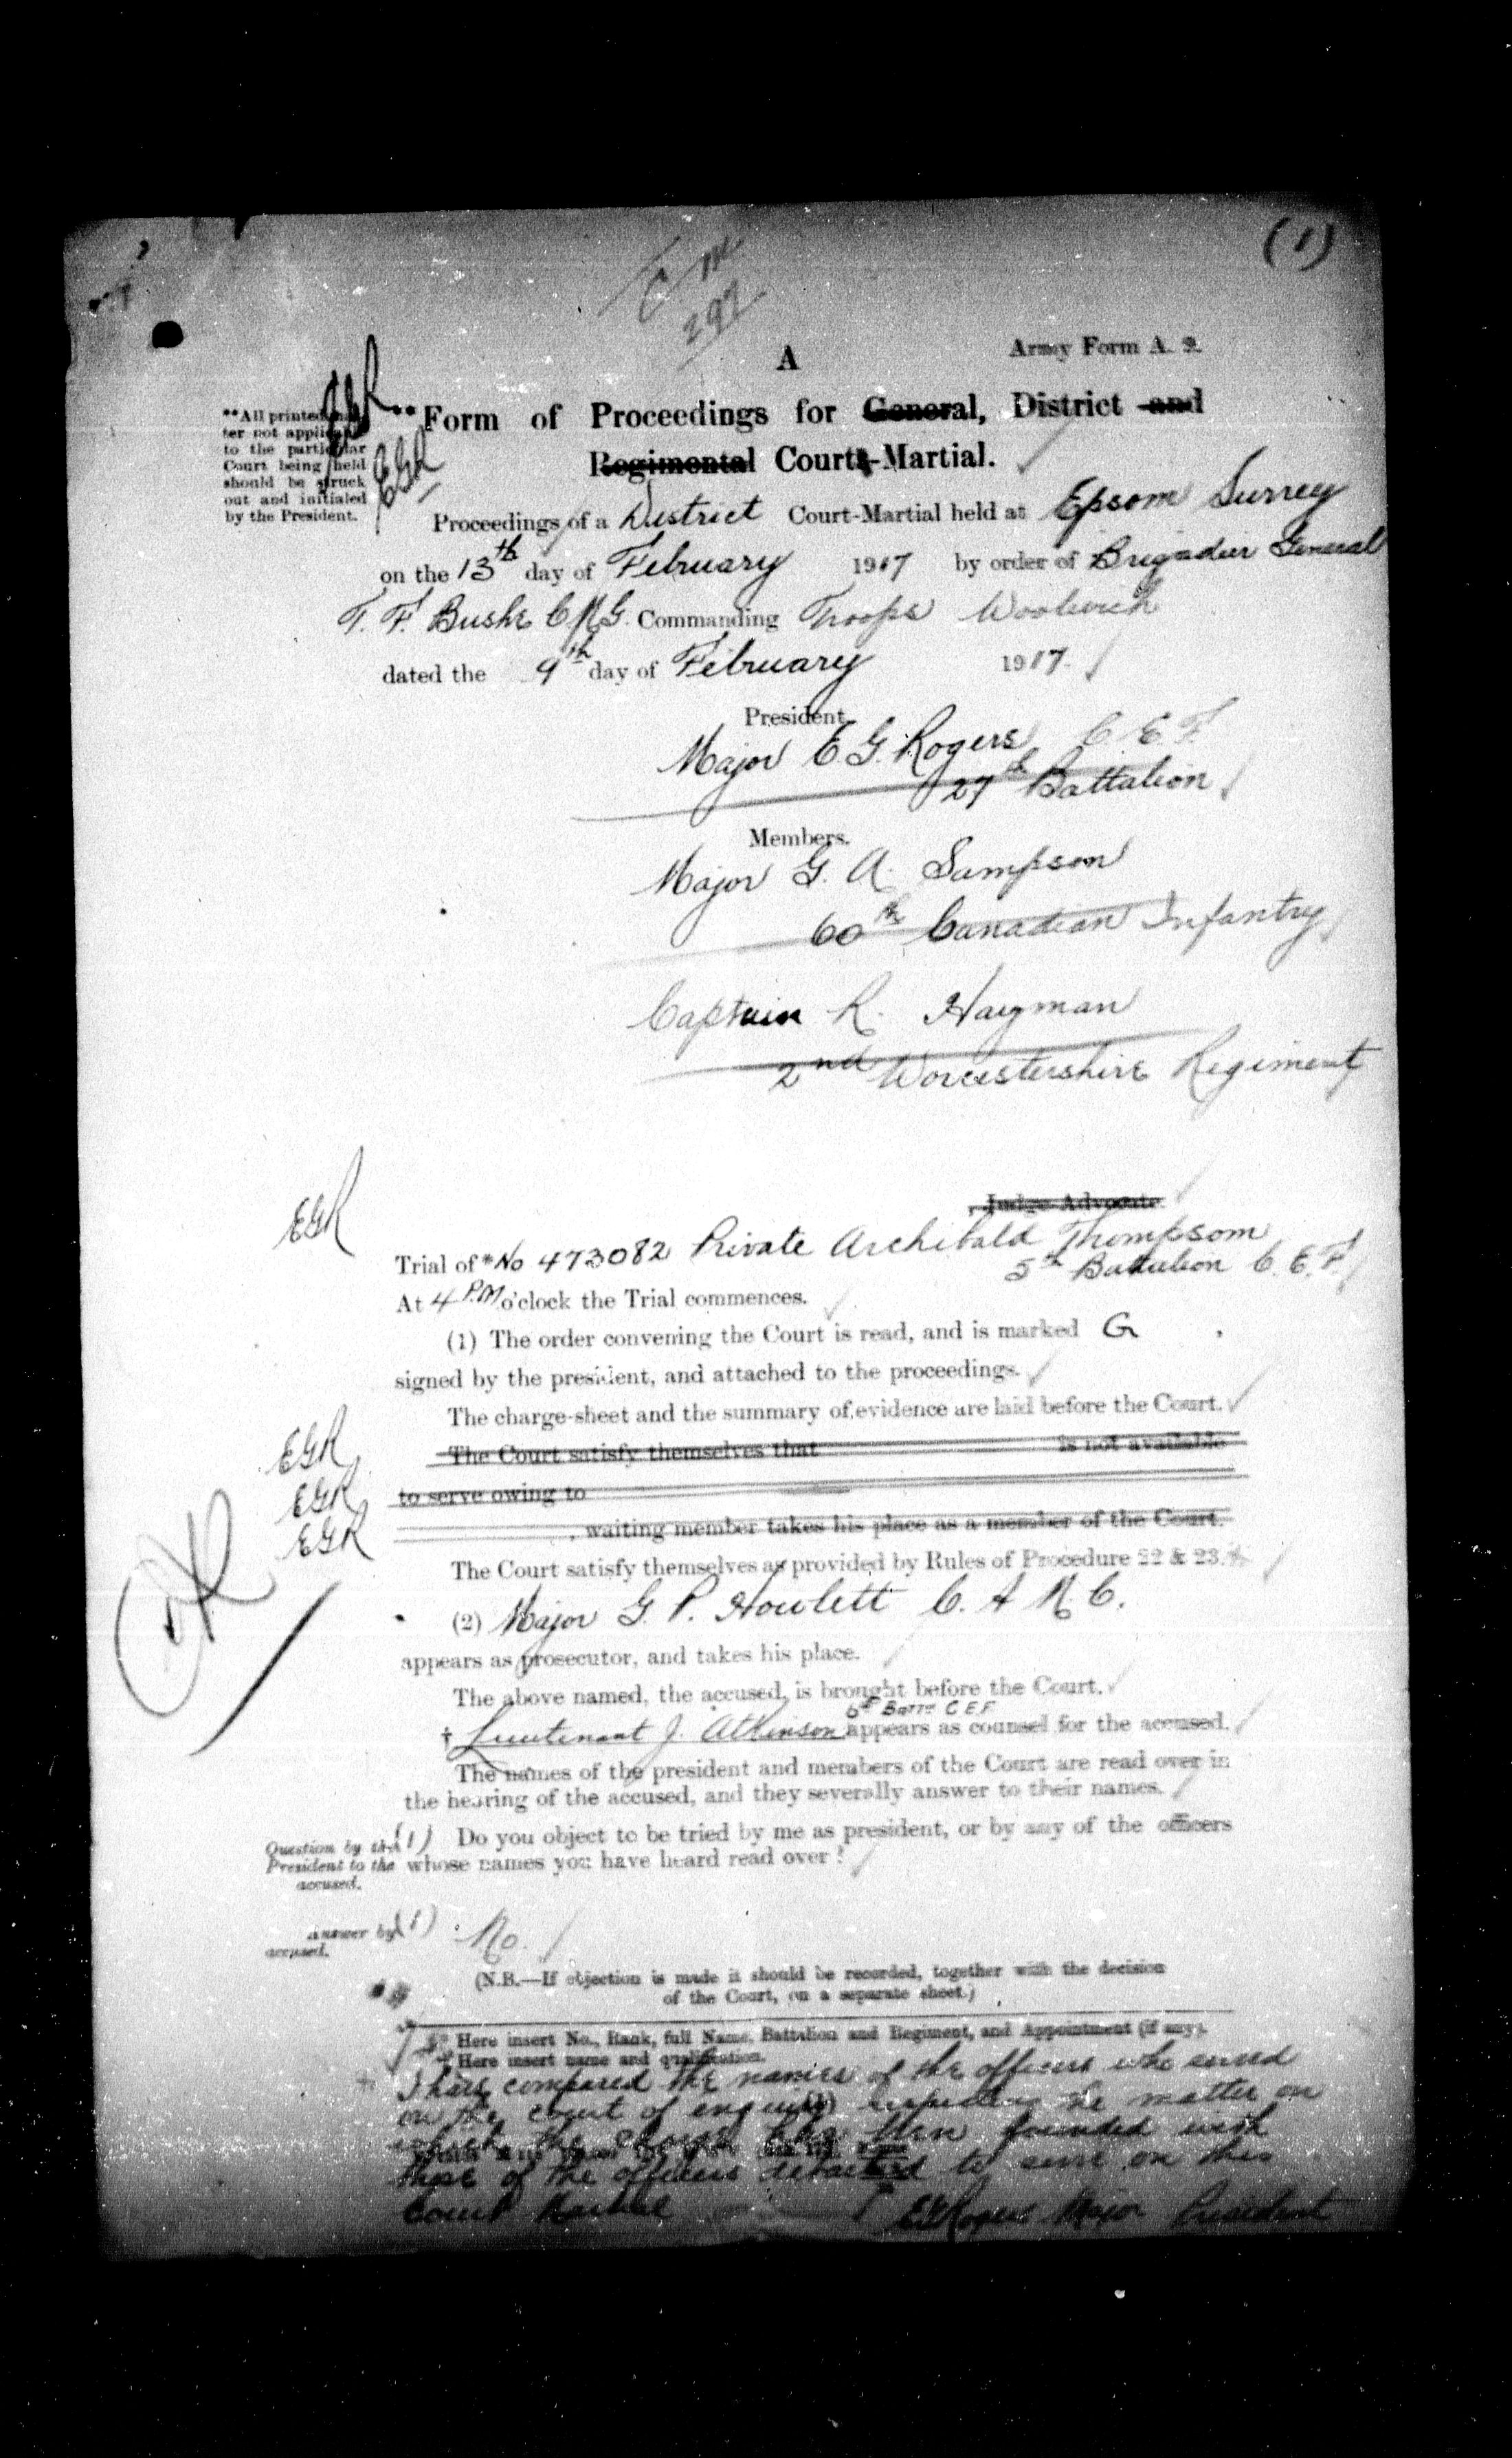 (1)
C M
297
A
Army Form A. 9.
**All printed mat-
ter not applicable
to the particular
Court being held
should be struck
out and initialed
by the President.
EGR
**Form of Proceedings for General, District and
Regimental Courts-Martial.
Proceedings of a District Court-Martial held at Epsom Surrey
on the 13th day of February 1917 by order of Brigadier General
T. F. Bushe C M G. Commanding Troops Woolwich
dated the 9th day of February 1917.
President.
Major E. G. Rogers C. E. F.
27th Battalion
Members.
Major G. A. Sampson
60th Canadian Infantry
Captain R. Hayman
2nd Worcestershire Regiment
, Judge Advocate.
EGR
Trial of *No 473082 Private Archibald Thompsom
5th Battalion C. E. F.
At 4 P.M o'clock the Trial commences.
(1) The order convening the Court is read, and is marked G
signed by the president, and attached to the proceedings.
The charge-sheet and the summary of evidence are laid before the Court.
EGR
The Court satisfy themselves that is not available
EGR
to serve owing to
EGR
, waiting member takes his place as a member of the Court.
The Court satisfy themselves as provided by Rules of Procedure 22 & 23.
(2) Major G. P. Howlett C. A M. C.
appears as prosecutor, and takes his place.
The above named, the accused, is brought before the Court.
Battn C E F
† Lieutenant J. Atkinson appears as counsel for the accused.
The names of the president and members of the Court are read over in
the hearing of the accused, and they severally answer to their names.
Question by the
President to the
accused.
(1) Do you object to be tried by me as president, or by any of the officers
whose names you have heard read over?
Answer by
accused.
(1) No.
(N.B.—If objection is made it should be recorded, together with the decision
of the Court, on a separate sheet.)
* Here insert No., Rank, full Name, Battalion and Regiment, and Appointment (if any).
† Here insert name and qualification.
I have compared the names of the officers who served
on the court of enquiry respecting the matter on
which the charge has been founded with
those of the officers detailed to serve on this
Court Martial
EGRogers Major President